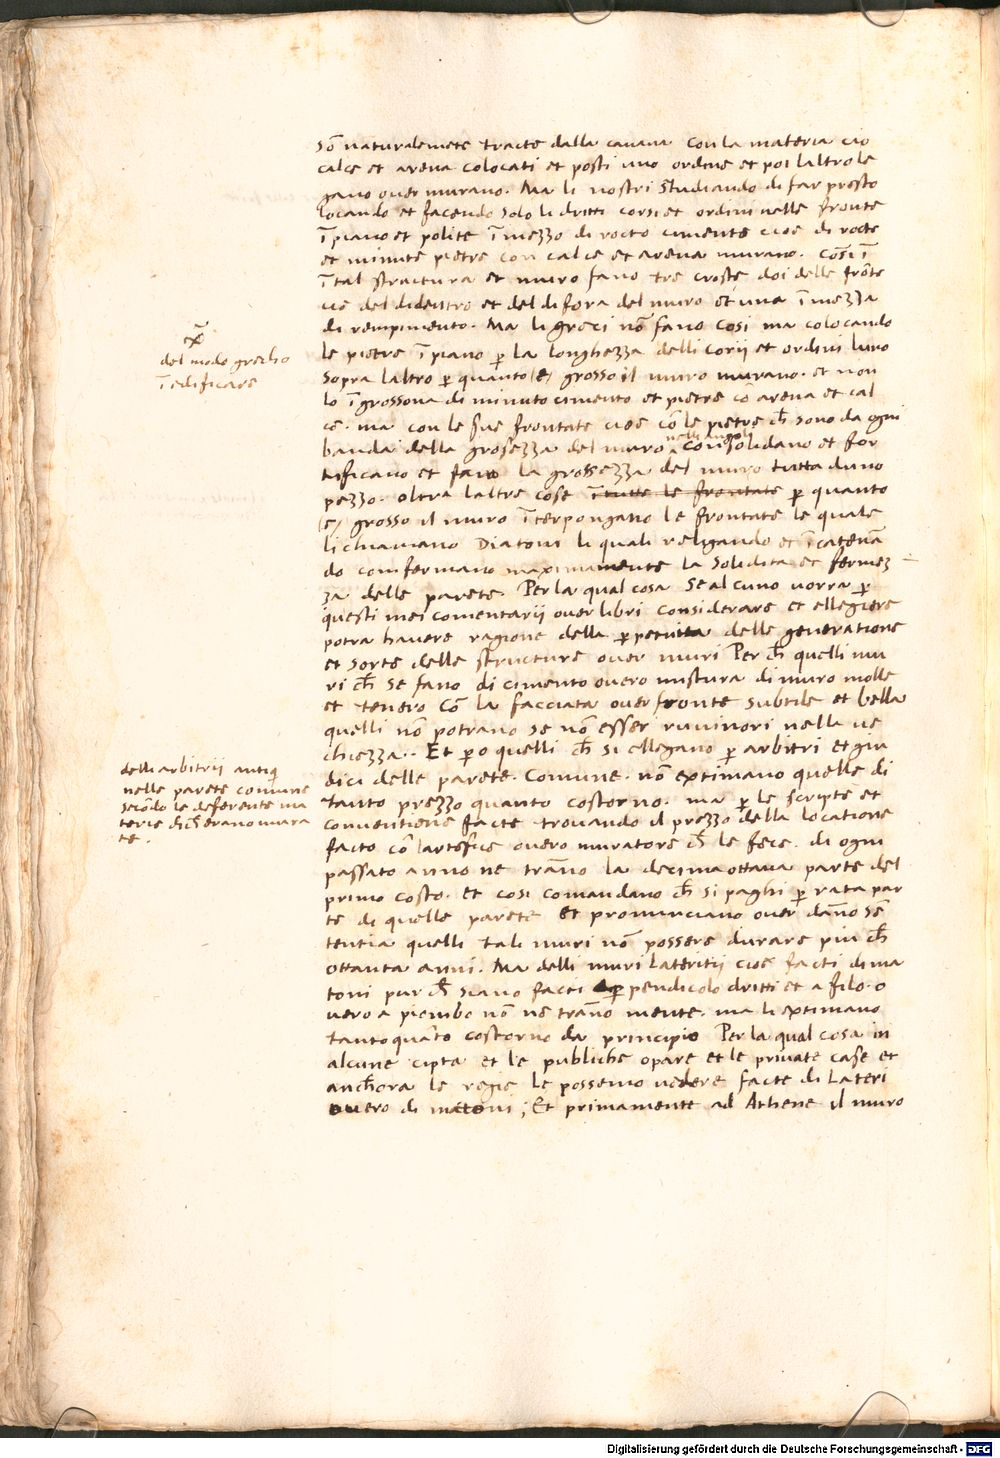 sō naturalemete tracte dalla cavana con la materia cio
calce et arena colocati et posti uno ordine et poi laltro le
gano over murano. Ma li nostri studiando di far presto
locando et facendo solo li dritti corsi et ordini nelle fronte
ī piano et polite ī mezzo di rocto cimento cioe di rocte
et minute pietre con calce et arena murano. Cosi ī
ī tal structura et muro fano tre croste doi delle frōte
cio del didentro et del di fora del muro et una ī mezza
di rempimento. Ma li greci nō fano cosi ma colocando
le pietre ī piano p la longhezza delli corii et ordini luno
sopra laltro p quanto (e) grosso il muro murano. et non
lo īgrossona di minuto cimento et pietre cō arena et cal
ce. ma con le sue frontate cioe cō le pietre ch̄ sono da ogni
banda della grosezza del muro nelli angoli consolidano et for
tificano et fano la grossezza del muro tutta duno
pezzo. oltra laltre cose ī tutte le frontate p quanto
(e) grosso il muro īterpongano le frontate le quale
li chiamano Diatoni li quali religando et īcatenā
do confermano maximamente la solidita et fermez
za delle parete. Per la qual cosa se alcuno vorra p
questi mei comentarii over libri considerare et ellegiere
potra havere ragione della ppetuita delle generatione
et sorte delle structure over muri Per ch̄ quelli mu
ri ch̄ se fano di cimento overo mistura di muro molle
et tenero cō la facciata over fronte subtile et bella
quelli nō potrano se nō esser ruvinori nella ve
chiezza.. Et po quelli ch̄ si ellegano p arbitri et giu
dici delle parete. Comune. nō extimano quelle di
tanto prezzo quanto costorno. ma p le scripte et
conventione facte trovando il prezzo della locatione
facto cō lartefice overo muratore ch̄ le fece. di ogni
passato anno ne trāno la decima ottava parte del
primo costo. et cosi comandano ch̄ si paghi p rata par
te di quelle parete et pronunciano over dāno sen
tentia quelli tali muri nō possere durare piu ch̄
ottanta anni. Ma delli muri Lateritii cioe facti di ma
toni pur ch̄ siano facti a ppendicolo dritti et a filo. o
vero a piombo nō ne trāno niente. ma li extimano
tanto quāto costorno da principio Per la qual cosa in
alcune cipta et le publiche opare et le private case et
anchora le regie le possemo vedere facte di Lateri
overo di matoni; Et primamente ad Athene il muro
del modo grecho
ī edificare
delli arbitrii antiq
nelle parete comune
secōdo le deferente ma
terie di ch̄ erano mura
te.
Digitalisierung gefördert durch die Deutsche Forschungsgemeinschaft - DFG